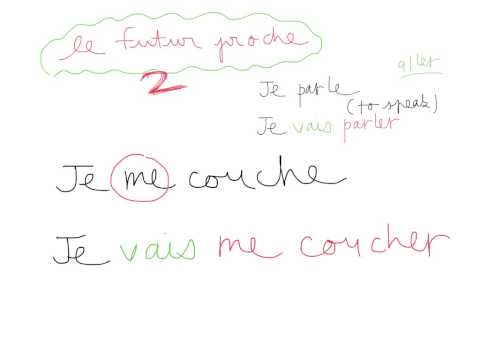 le futur proche
2
aller
Je parle
(to speak)
Je vais parler
Je me couche
Je vais me coucher